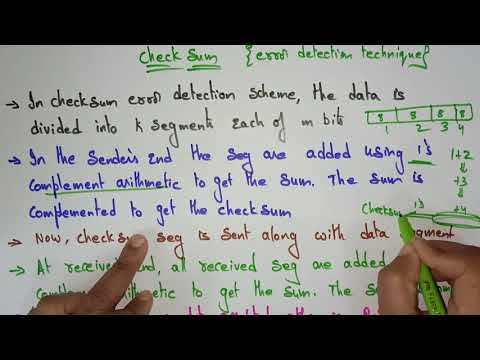 Check Sum {error detection technique}
→ In checksum error detection scheme, the data is
divided into k segments each of m bits
8 8 8 8
1 2 3 4
→ In the Sender's end the seg are added using 1's
complement arithmetic to get the sum. The sum is
complemented to get the checksum
1+2
+3
+4
Checksum
1's
→ Now, check seg is sent along with data segment
→ At receiver end, all received seg are added
arithmetic to get the sum. The